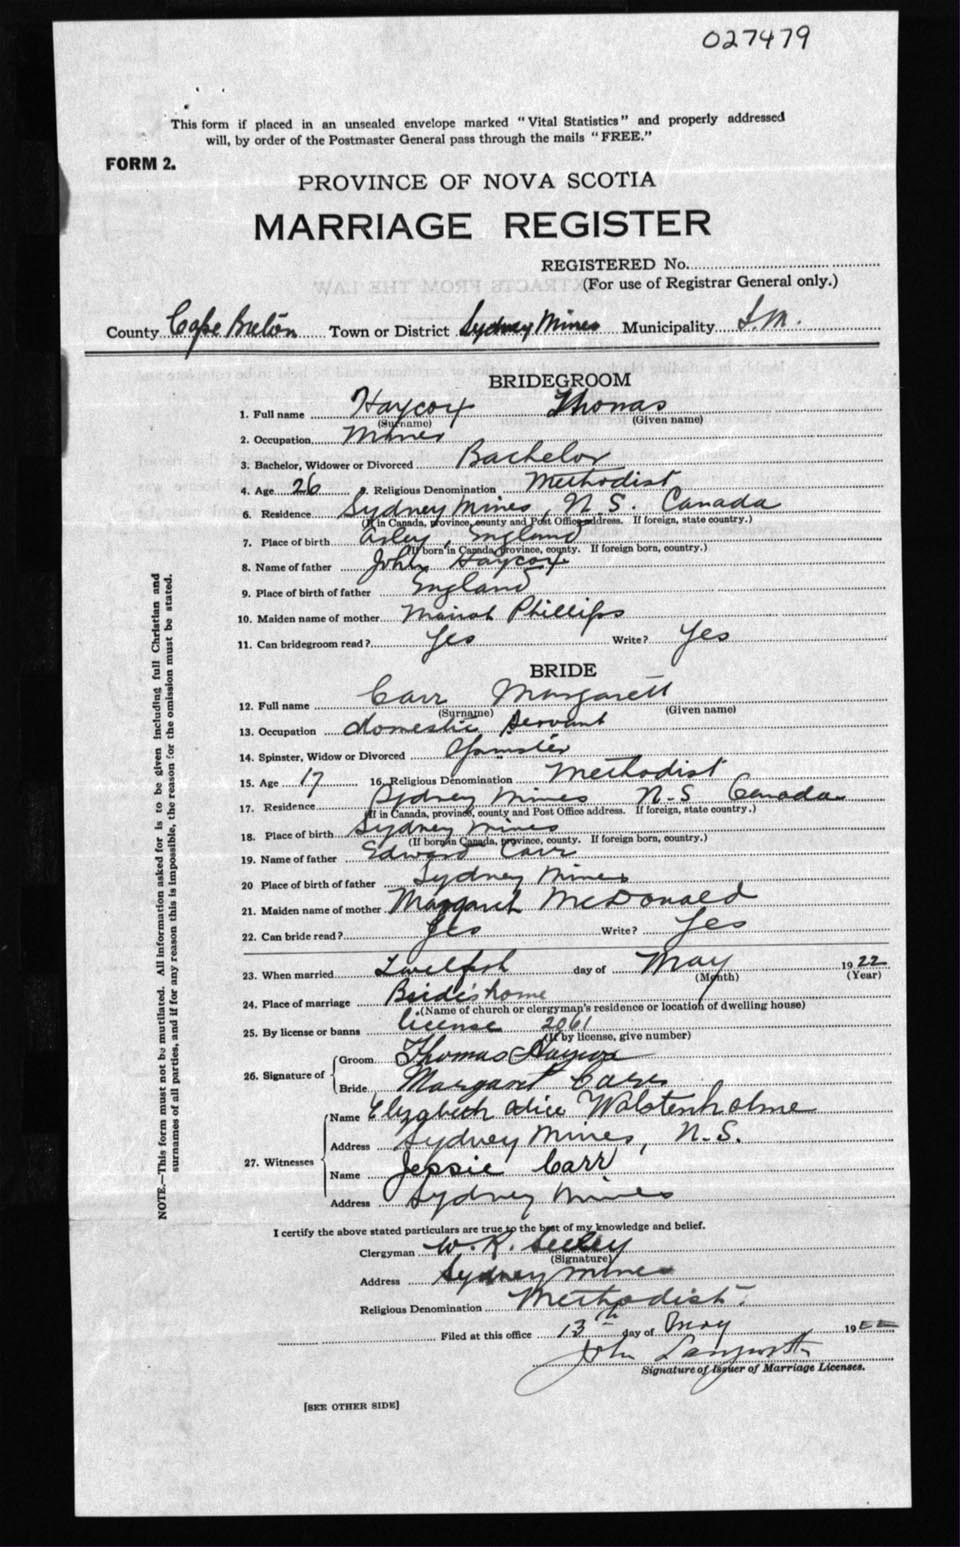 027479
This form if placed in an unsealed envelope marked "Vital Statistics" and properly addressed
will, by order of the Postmaster General pass through the mails "FREE."
FORM 2.
PROVINCE OF NOVA SCOTIA
MARRIAGE REGISTER
REGISTERED No.
(For use of Registrar General only.)
County Cape Breton Town or District Sydney Mines Municipality S.M.
BRIDEGROOM
1. Full name Haycox Thomas
(Surname) (Given name)
2. Occupation Miner
3. Bachelor, Widower or Divorced Bachelor
4. Age 26 5. Religious Denomination Methodist
6. Residence Sydney Mines, N.S. Canada
(If in Canada, province, county and Post Office address. If foreign, state country.)
7. Place of birth England
(If born in Canada, province, county. If foreign born, country.)
8. Name of father John Haycox
9. Place of birth of father England
10. Maiden name of mother Phillips
11. Can bridegroom read? Yes Write? Yes
BRIDE
12. Full name Carr Margarett
(Surname) (Given name)
13. Occupation domestic Servant
14. Spinster, Widow or Divorced
15. Age 17 16. Religious Denomination Methodist
17. Residence Sydney Mines N.S Canada
(If in Canada, province, county and Post Office address. If foreign, state country.)
18. Place of birth Sydney Mines
(If born in Canada, province, county. If foreign born, country.)
19. Name of father Edward Carr
20 Place of birth of father Sydney Mines
21. Maiden name of mother Margaret McDonald
22. Can bride read? Yes Write? Yes
23. When married day of May 1922
(Month) (Year)
24. Place of marriage Bride's home
(Name of church or clergyman's residence or location of dwelling house)
25. By license or banns license 2061
(If by license, give number)
26. Signature of Groom Thomas Haycox
Bride Margaret Carr
27. Witnesses Name Elizabeth Alice Wolstenholme
Address Sydney Mines, N.S.
Name Jessie Carr
Address Sydney Mines
I certify the above stated particulars are true to the best of my knowledge and belief.
Clergyman W. R. Seeley
(Signature)
Address Sydney Mines
Religious Denomination Methodist.
Filed at this office 13th day of May 1922
John Langworth
Signature of Issuer of Marriage Licenses.
[SEE OTHER SIDE]
NOTE.—This form must not be mutilated. All information asked for is to be given including full Christian and
surnames of all parties, and if for any reason this is impossible, the reason for the omission must be stated.